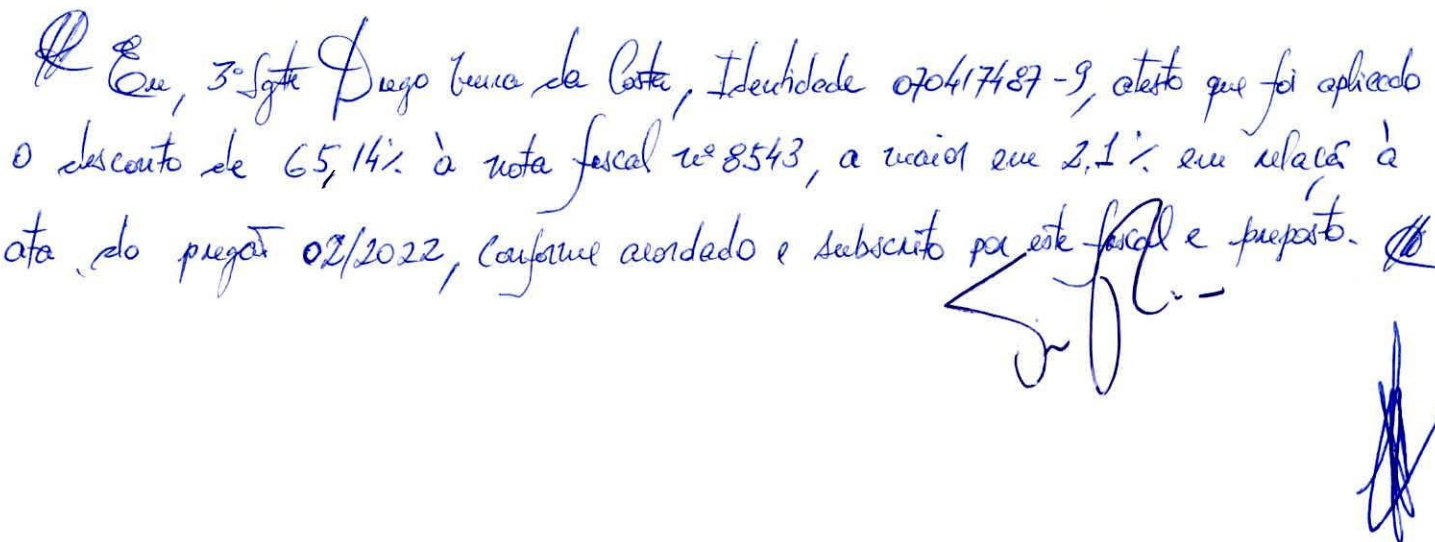 Eu, 3º Sgtº Diego da Costa, Identidade 070417487-9, atesto que foi aplicado
o desconto de 65,14% à nota fiscal nº 8543, a maior em 2,1% em relação à
ata do pregão 02/2022, conforme acordado e subscrito por este fiscal e preposto.